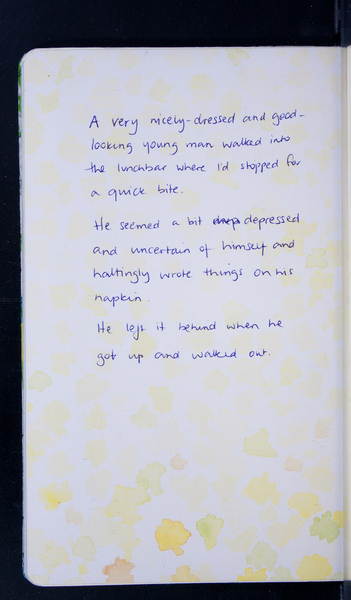 A very nicely-dressed and good-
looking young man walked into
the lunchbar where I'd stopped for
a quick bite.
He seemed a bit depressed
and uncertain of himself and
haltingly wrote things on his
napkin.
He left it behind when he
got up and walked out.